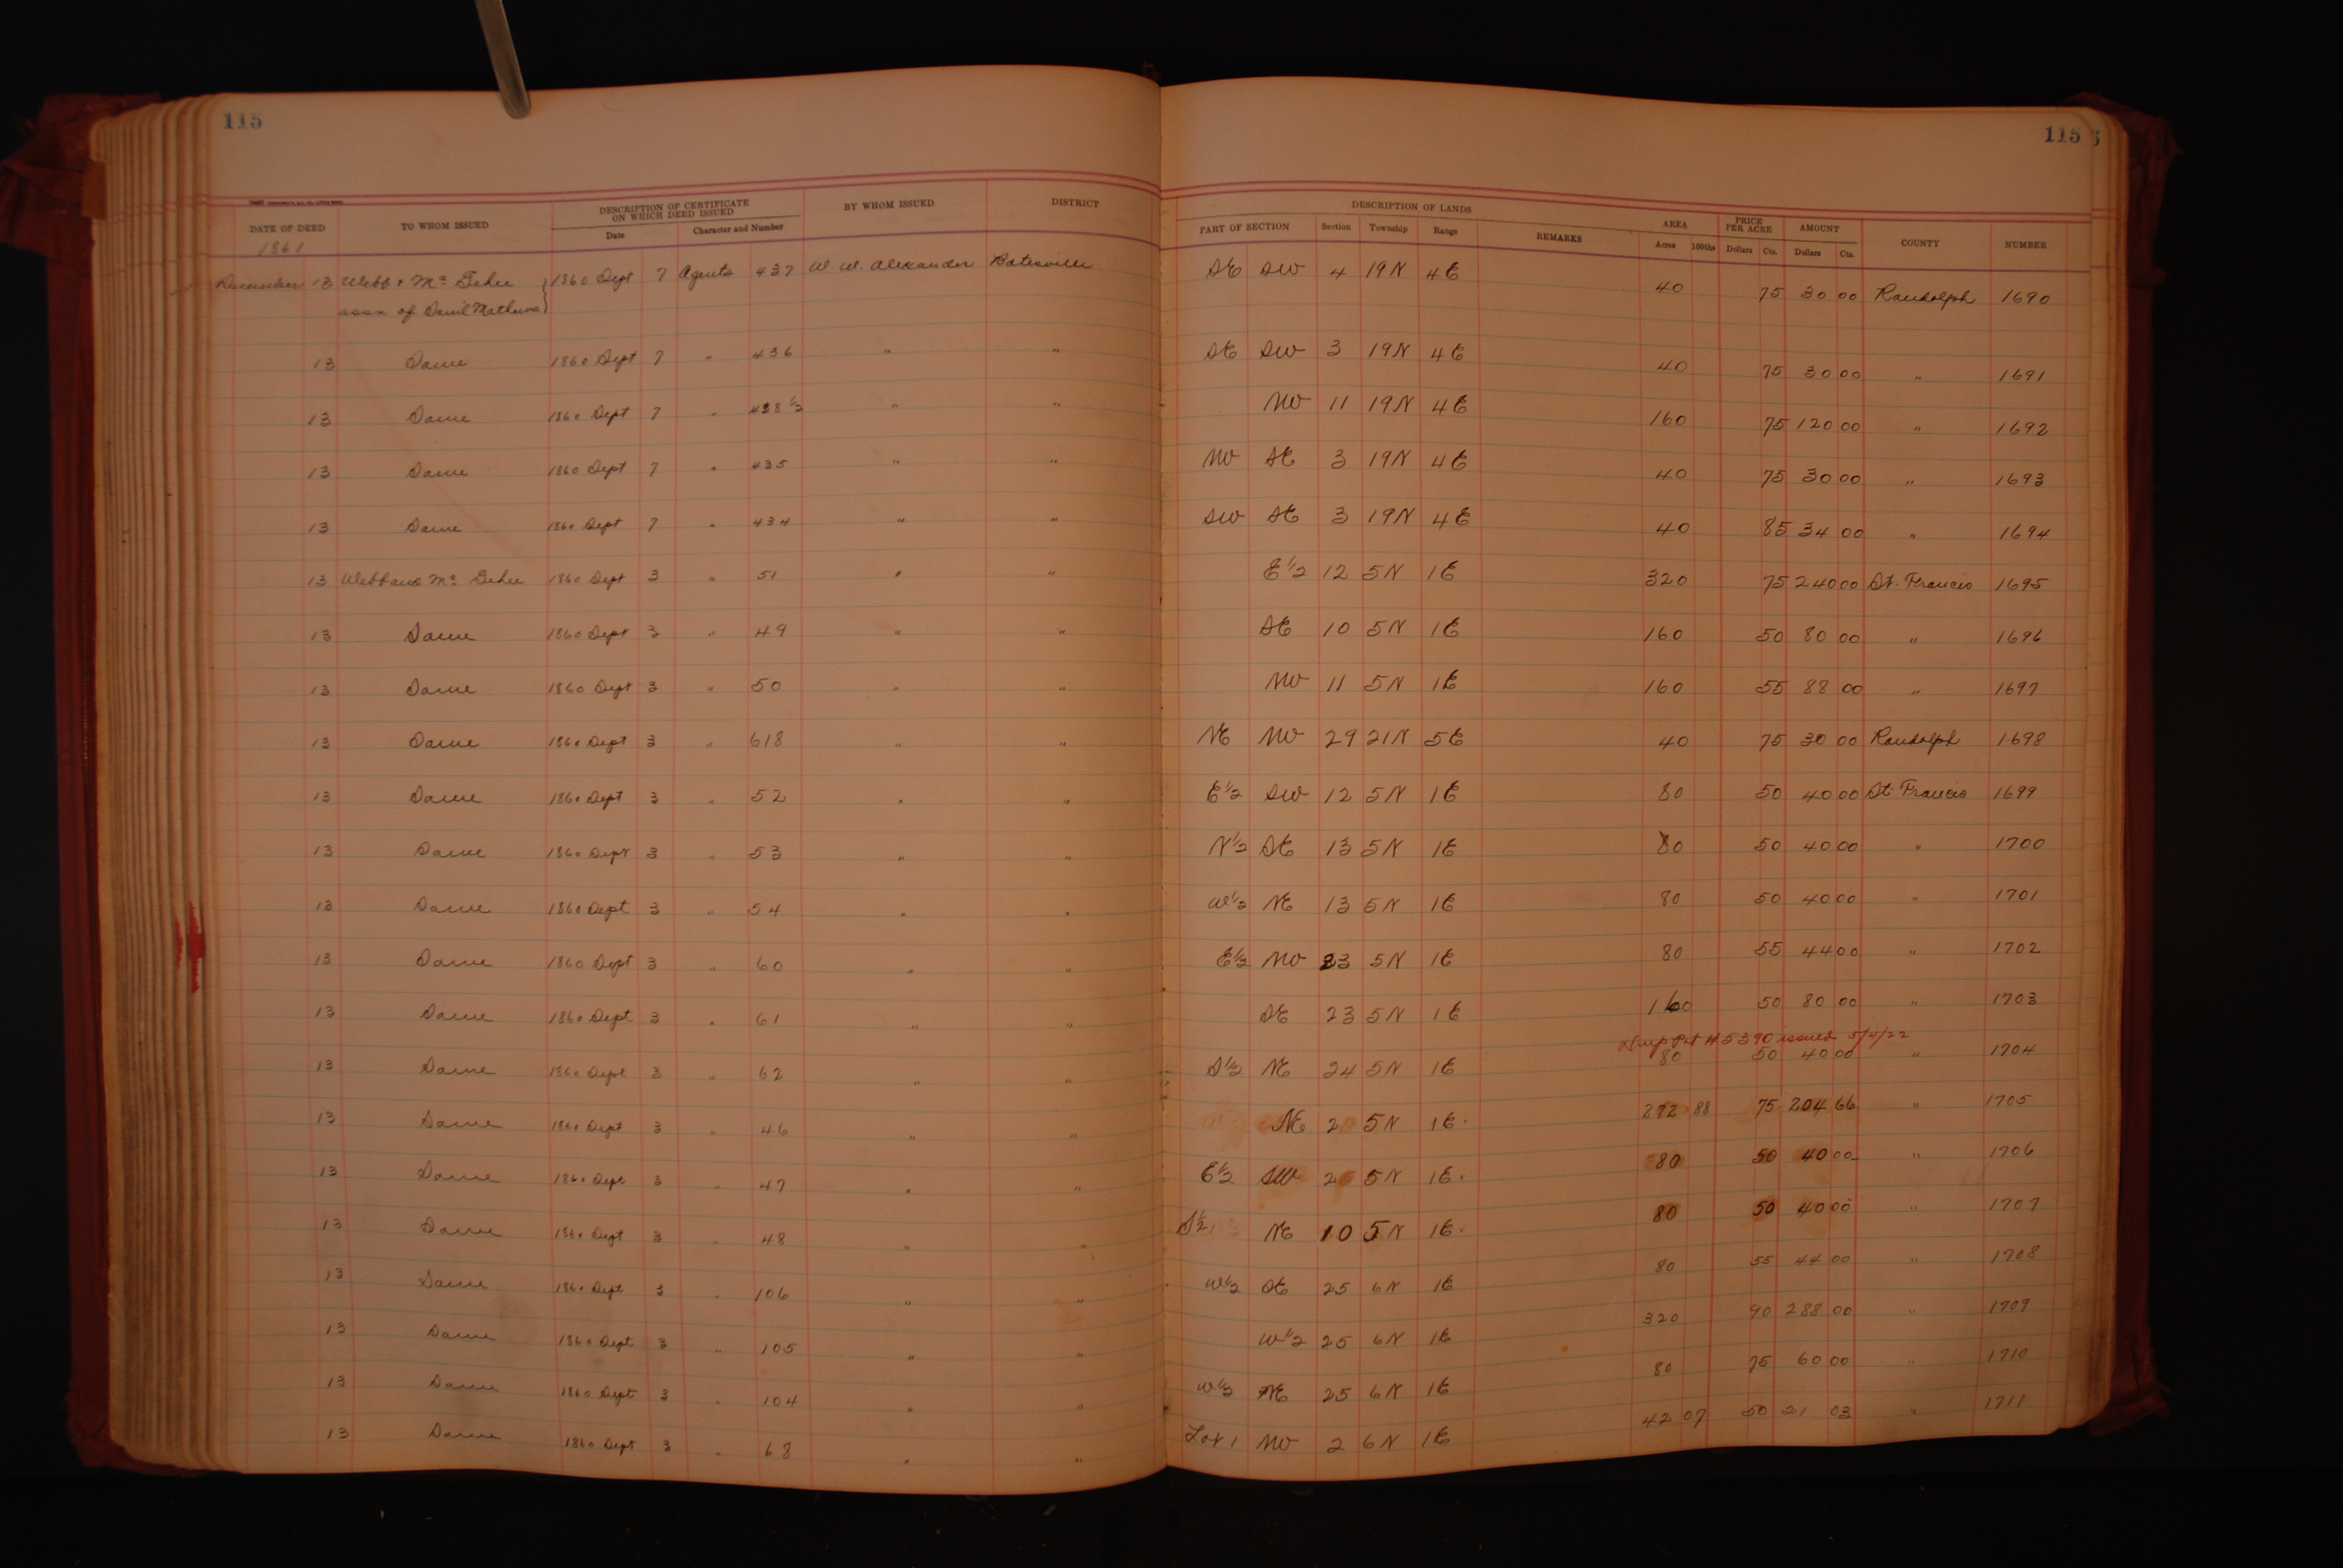 115
115
DATE OF DEED TO WHOM ISSUED DESCRIPTION OF CERTIFICATE ON WHICH DEED ISSUED Date Character and Number BY WHOM ISSUED DISTRICT DESCRIPTION OF LANDS PART OF SECTION Section Township Range REMARKS AREA Acres 100ths PRICE PER ACRE Dollars Cts. AMOUNT Dollars Cts. COUNTY NUMBER
1861
December 13 Webb & Mc Gehee 1860 Sept 7 Agents 437 W. W. Alexander Batesville SE SW 4 19N 4E 40 75 30 00 Randolph 1690
assn of Danil Mathews
13 Same 1860 Sept 7 " 436 " " SE SW 3 19N 4E 40 75 30 00 " 1691
13 Same 1860 Sept 7 " 438 1/2 " " NW 11 19N 4E 160 75 120 00 " 1692
13 Same 1860 Sept 7 " 435 " " NW SE 3 19N 4E 40 75 30 00 " 1693
13 Same 1860 Sept 7 " 434 " " SW SE 3 19N 4E 40 85 34 00 " 1694
13 Webb and Mc Gehee 1860 Sept 3 " 51 " " E 1/2 12 5N 1E 320 75 240 00 St. Francis 1695
13 Same 1860 Sept 3 " 49 " " SE 10 5N 1E 160 50 80 00 " 1696
13 Same 1860 Sept 3 " 50 " " NW 11 5N 1E 160 55 88 00 " 1697
13 Same 1860 Sept 3 " 618 " " NE NW 29 21N 5E 40 75 30 00 Randolph 1698
13 Same 1860 Sept 3 " 52 " " E 1/2 SW 12 5N 1E 80 50 40 00 St. Francis 1699
13 Same 1860 Sept 3 " 53 " " N 1/2 SE 13 5N 1E 80 50 40 00 " 1700
13 Same 1860 Sept 3 " 54 " " W 1/2 NE 13 5N 1E 80 50 40 00 " 1701
13 Same 1860 Sept 3 " 60 " " E 1/2 NW 23 5N 1E 80 55 44 00 " 1702
13 Same 1860 Sept 3 " 61 " " SE 23 5N 1E 160 50 80 00 " 1703
Dup Pat #5390 issued 5/4/22
13 Same 1860 Sept 3 " 62 " " S 1/2 NE 24 5N 1E 80 50 40 00 " 1704
13 Same 1860 Sept 3 " 46 " " NE 2 5N 1E. 272 88 75 204 66 " 1705
13 Same 1860 Sept 3 " 47 " " E 1/2 SW 2 5N 1E. 80 50 40 00 " 1706
13 Same 1860 Sept 3 " 48 " " S 1/2 NE 10 5N 1E. 80 50 40 00 " 1707
13 Same 1860 Sept 3 " 106 " " W 1/2 SE 25 6N 1E 80 55 44 00 " 1708
13 Same 1860 Sept 3 " 105 " " W 1/2 25 6N 1E 320 90 288 00 " 1709
13 Same 1860 Sept 3 " 104 " " W 1/2 NE 25 6N 1E 80 75 60 00 " 1710
13 Same 1860 Sept 3 " 68 " " Lot 1 NW 2 6N 1E 42 07 50 21 03 " 1711